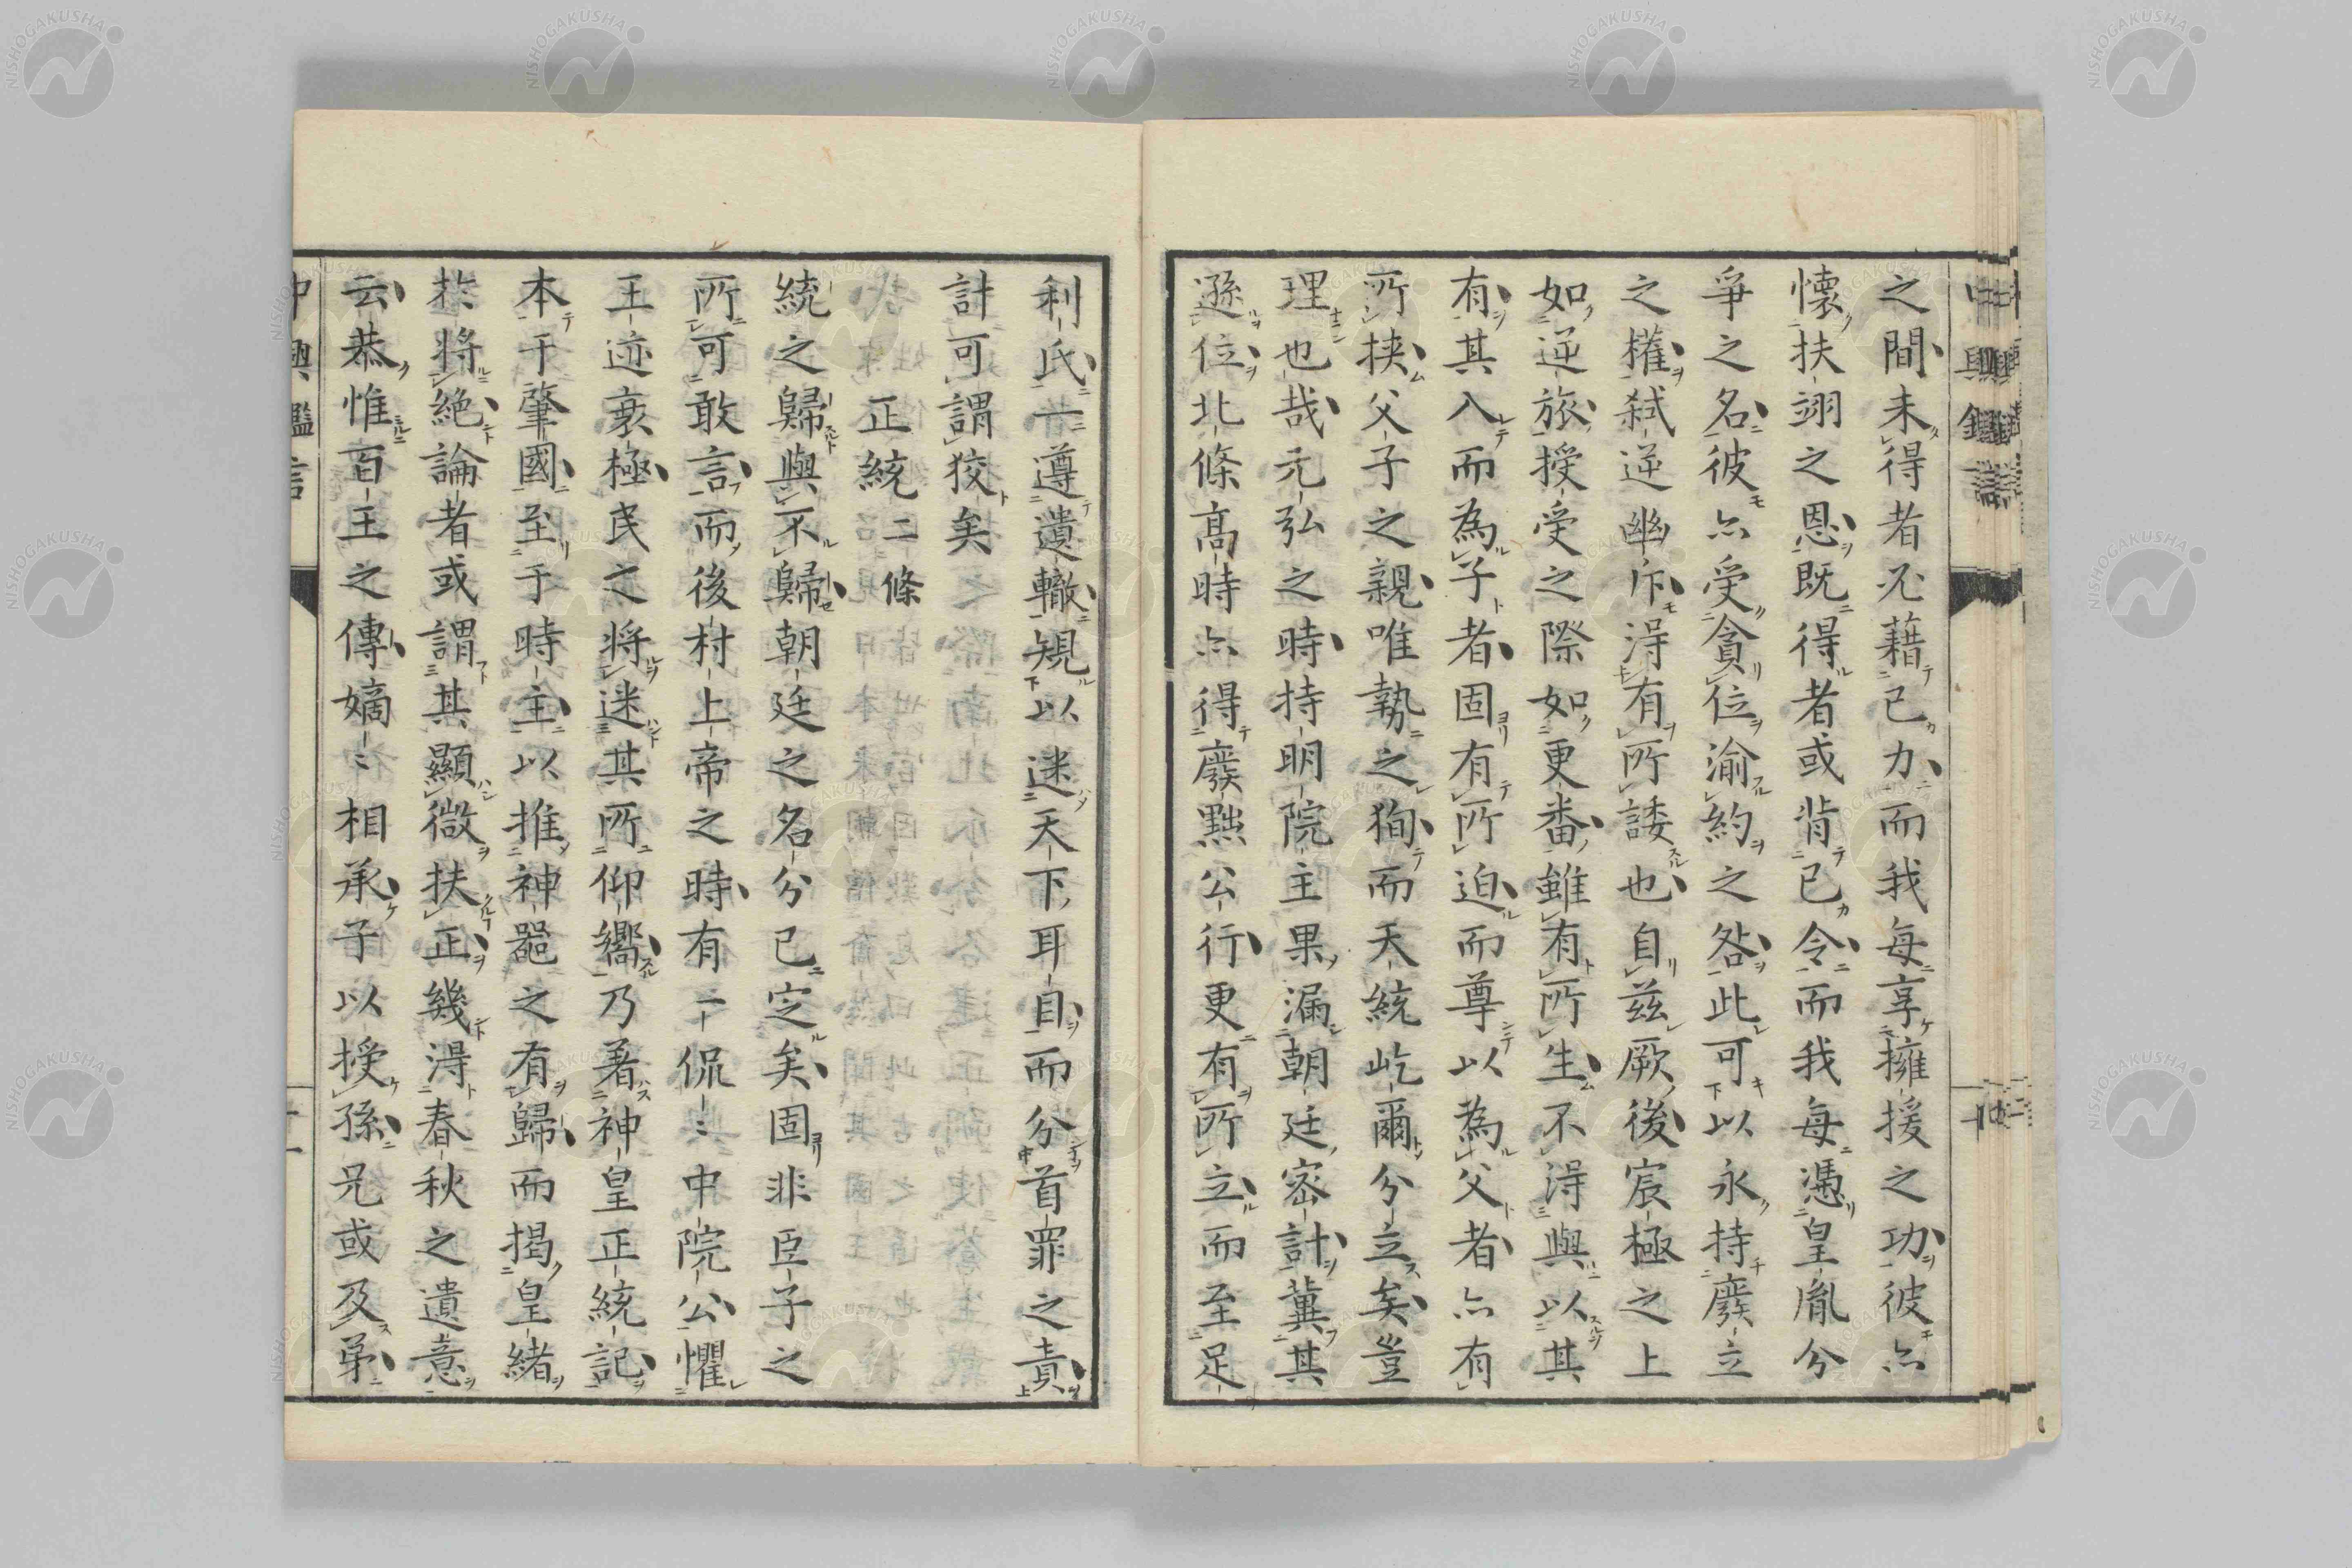 之間未得者必藉己力而我每享擁援之功彼亦
懷扶翊之恩既得者或背己令而我每憑皇胤分
爭之名彼亦受貪位渝約之咎此可以永持廢立
之權弑逆幽𠨘淂有所諉也自茲厥後宸極之上
如逆旅授受之際如更番雖有所生不淂與以其
有其入而為子者固有所迫而尊以為父者亦有
所挟父子之親唯勢之狥而天統屹爾分立矣豈
理也哉元弘之時持明院主果漏朝廷密計冀其
遜位北條高時亦得廢黜公行更有所立而至足
利氏一遵遺轍規以迷天下耳目而分首罪之責
計可謂狡矣
正統二條
統之歸與不歸朝廷之名分已定矣固非臣子之
所可敢言而後村上帝之時有一侃〻中院公懼
王迹衰極民之將迷其所仰嚮乃著神皇正統記
本于肇國至于時主以推神器之有歸而揭皇緒
於將絶論者或謂其顯微扶正幾淂春秋之遺意
云恭惟百王之傳嫡〻相承子以授孫兄或及弟
中興鑑言
十一